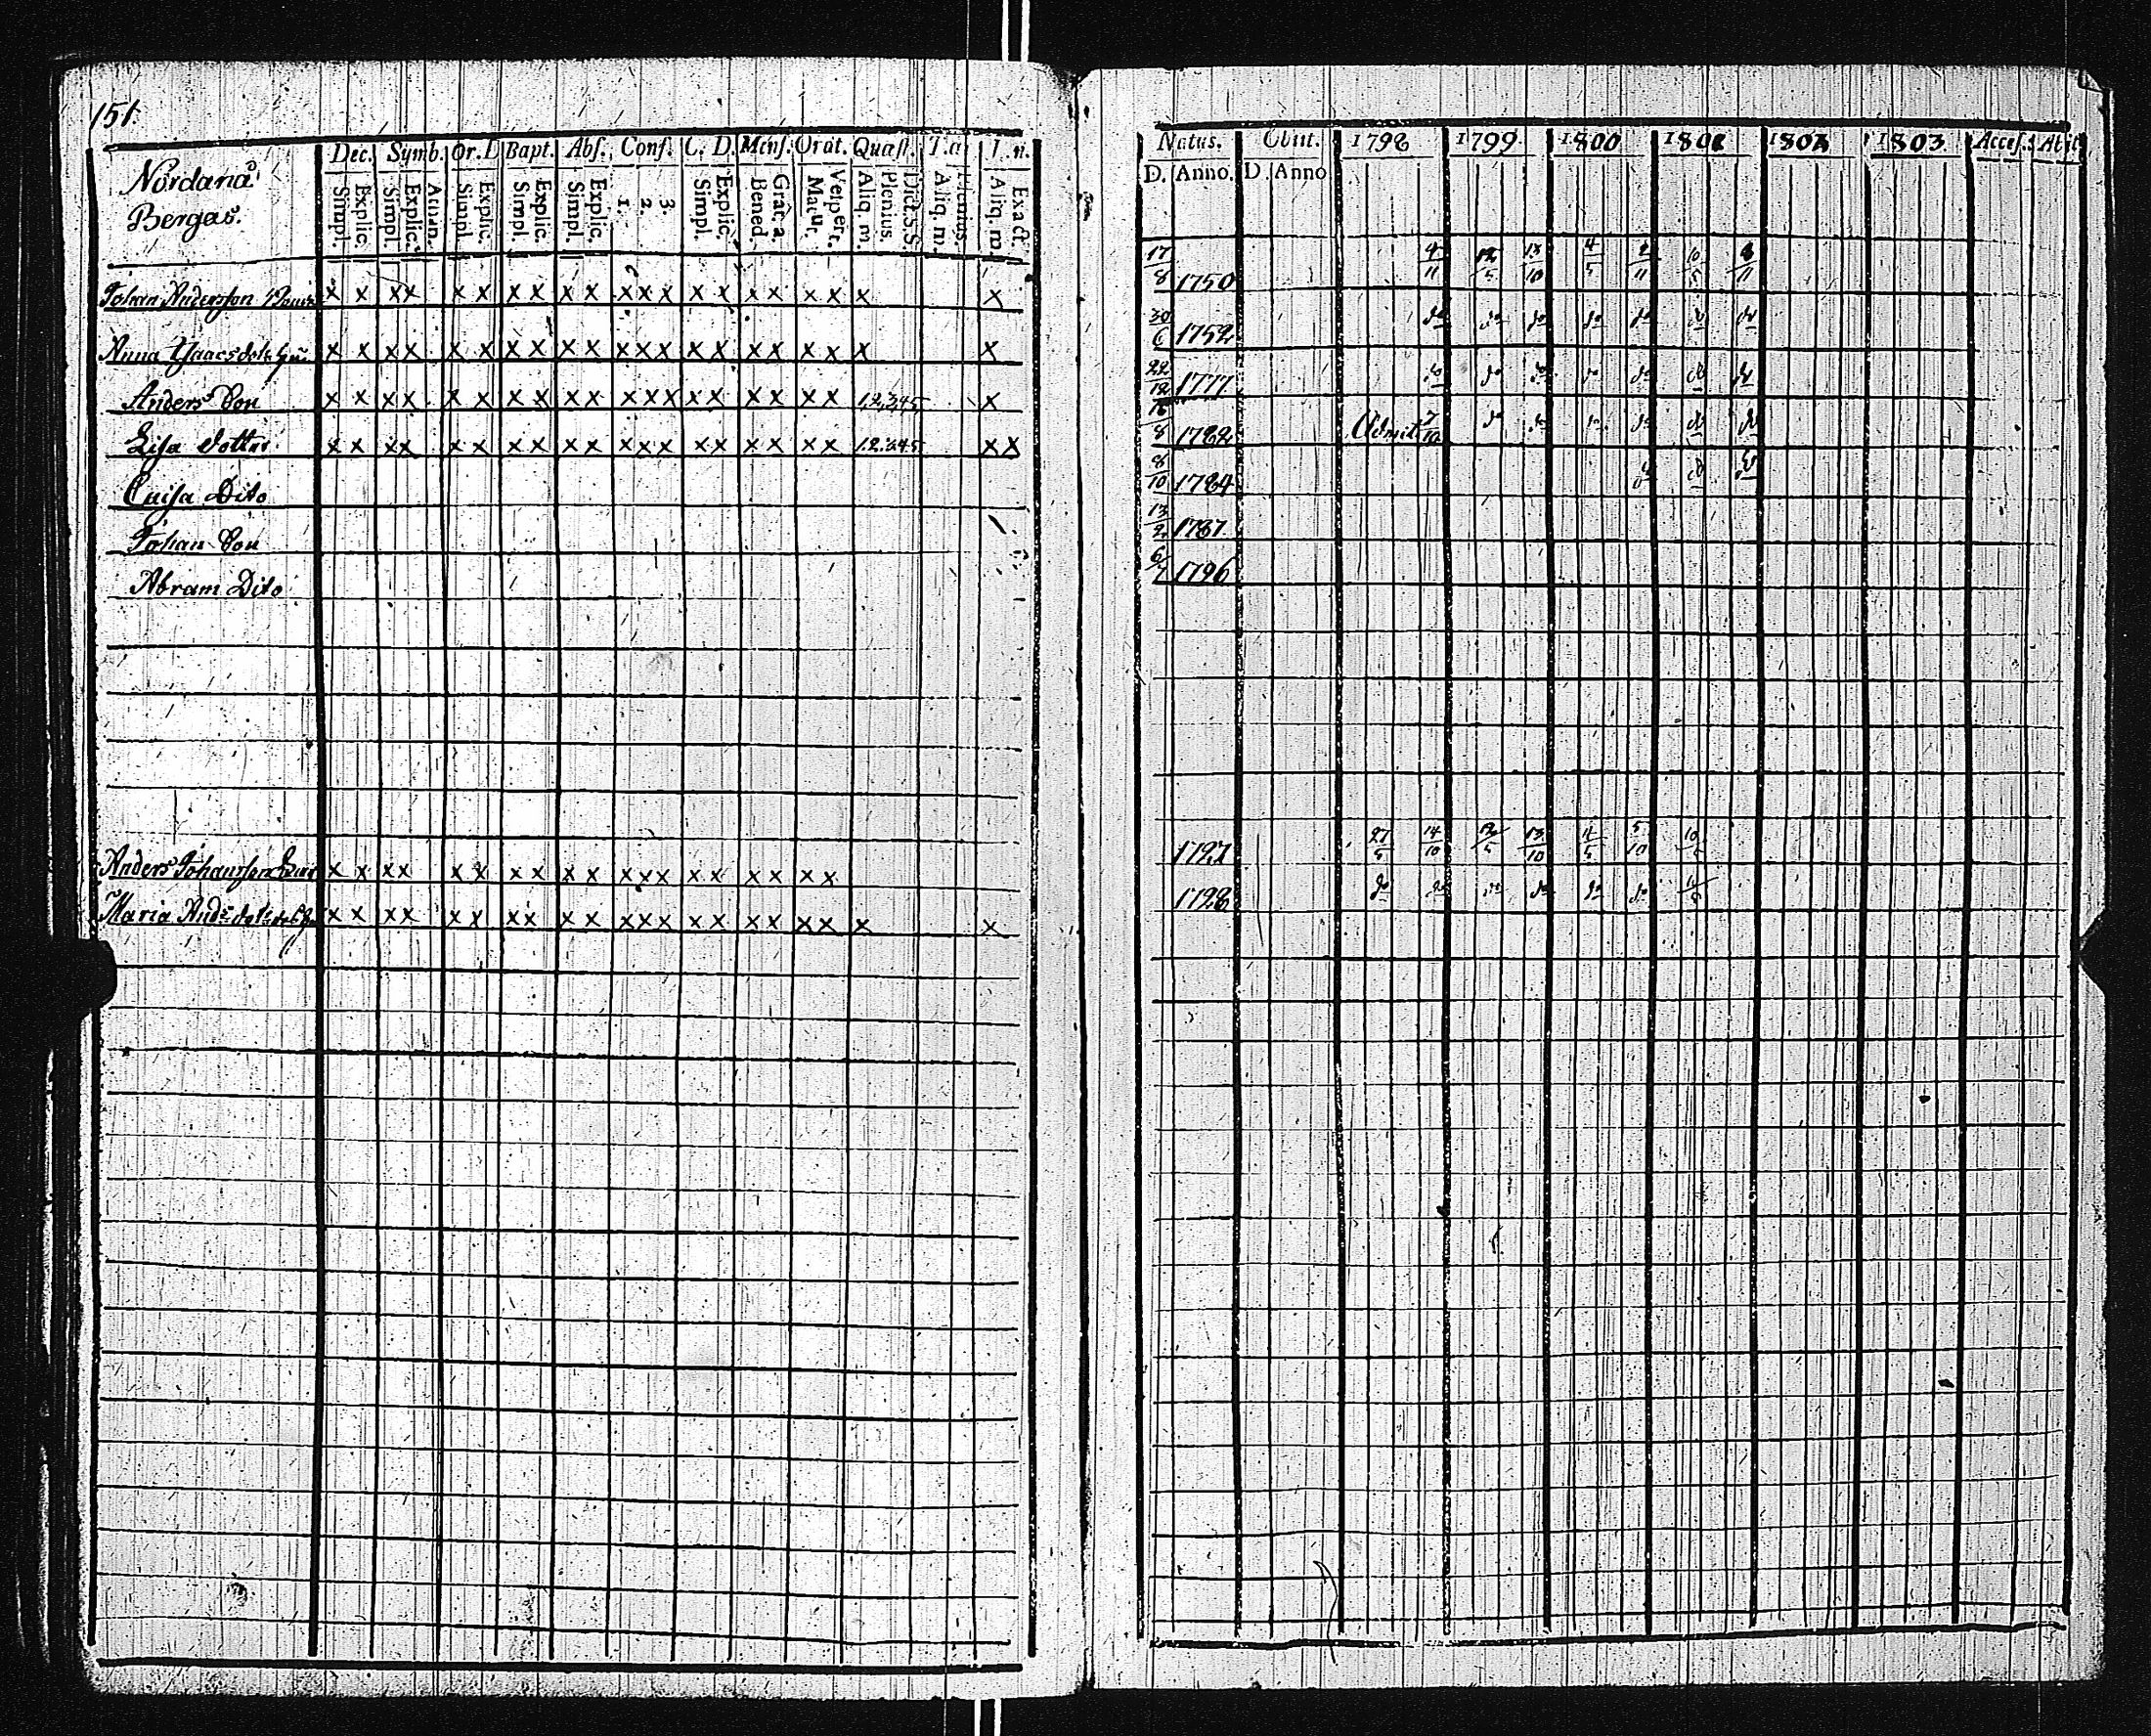 151
Nordanå Dec. Symb. Or. D Bapt. Abs. Conf. C. D. Mens. Orat. Quæst. T. a
Bergas. Simpl. Explic. Simpl. Explic. Athan. Simpl. Explic. Simpl. Explic. Simpl. Explic. 1. 2. 3. Simpl. Explic. Bened. Grat. a. Matu. Vesper. Aliq. m. Plenius. Dict. S.S. Aliq. m. Plenius. Aliq. m. Exact.
Johan Andersson x x x x x x x x x x x x x x x x x x x x x
Anna x x x x x x x x x x x x x x x x x x x x x
Anders Son x x x x x x x x x x x x x x x x x x x 1,2,3,4,5 x
Lisa dotter x x x x x x x x x x x x x x x x x x x 1.2.3.4.5 x x
Cuisa Dito
Johan Son
Abram Dito
Anders Johansson x x x x x x x x x x x x x x x x x x x
Maria x x x x x x x x x x x x x x x x x x x x x
Natus. Obiit. 1798 1799 1800 1801 1802 1803 Access. Abiit
D. Anno. D. Anno
17/8 1750 4/11 12/5 13/10 4/5 2/11 10/5 8/11
30/6 1752 do do do do do do do
22/12 1777 do do do do do do do
16/8 1782 Admit. 7/10 do do do do do do
8/10 1784 do do do
13/2 1787.
6/7 1796
1727 27/5 14/10 12/5 13/10 4/5 5/10 10/5
1728 do do do do do do